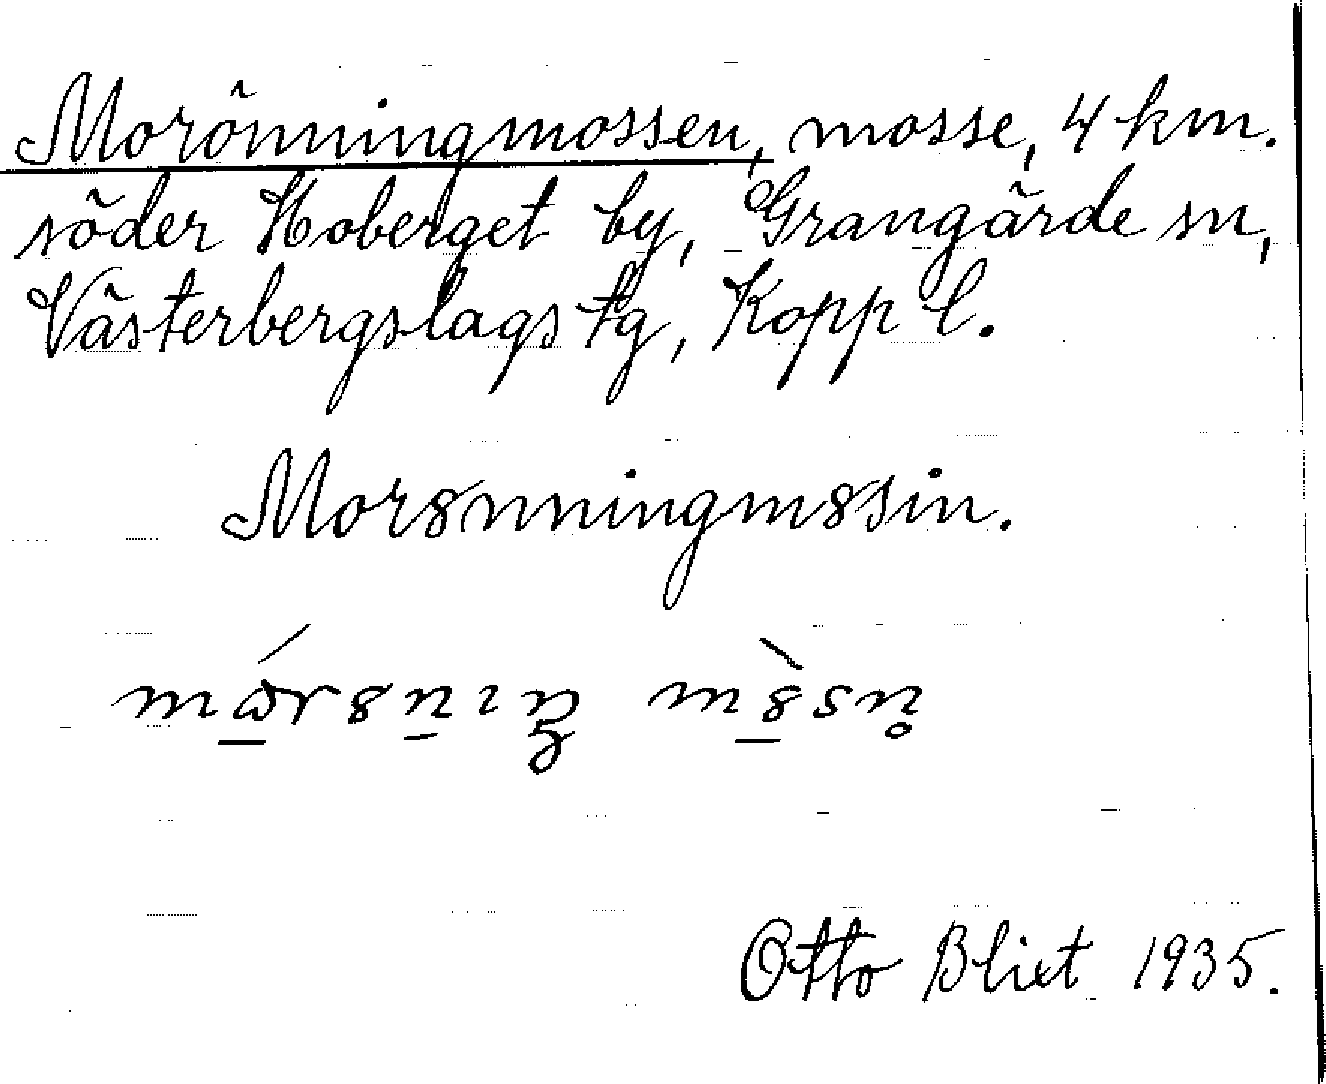 Morönningmossen, mosse, 4 km.
söder Hoberget by, Grangärde sn,
Västerbergslags tg, Kopp l.
Mor8nningm8sin.
mɷ́r8nıŋ m8̀sn̥
Otto Blixt 1935.